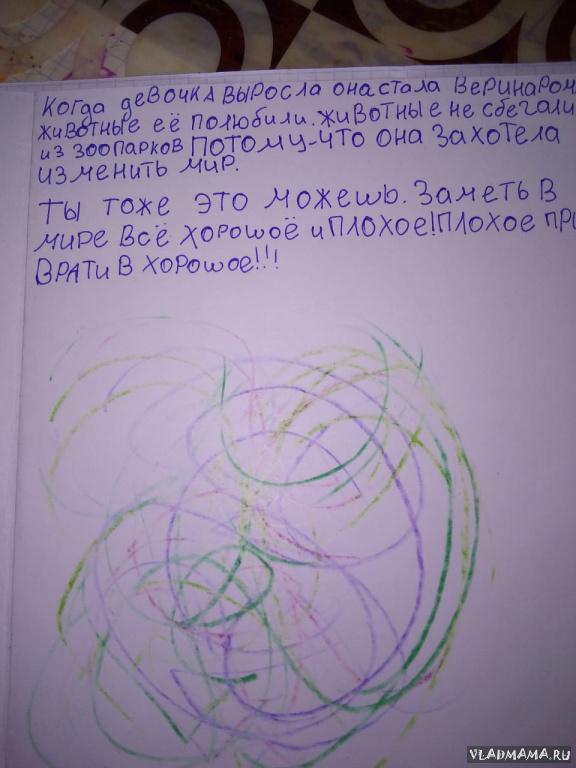 Когда девочка выросла она стала веринаром
животные её полюбили. животные не сбегали
из зоопарков потому-что она захотела
изменить мир.
Ты тоже это можешь. Заметь в
мире всё хорошоё и плохое! Плохое при
врати в хорошое!!!
VLADMAMA.RU